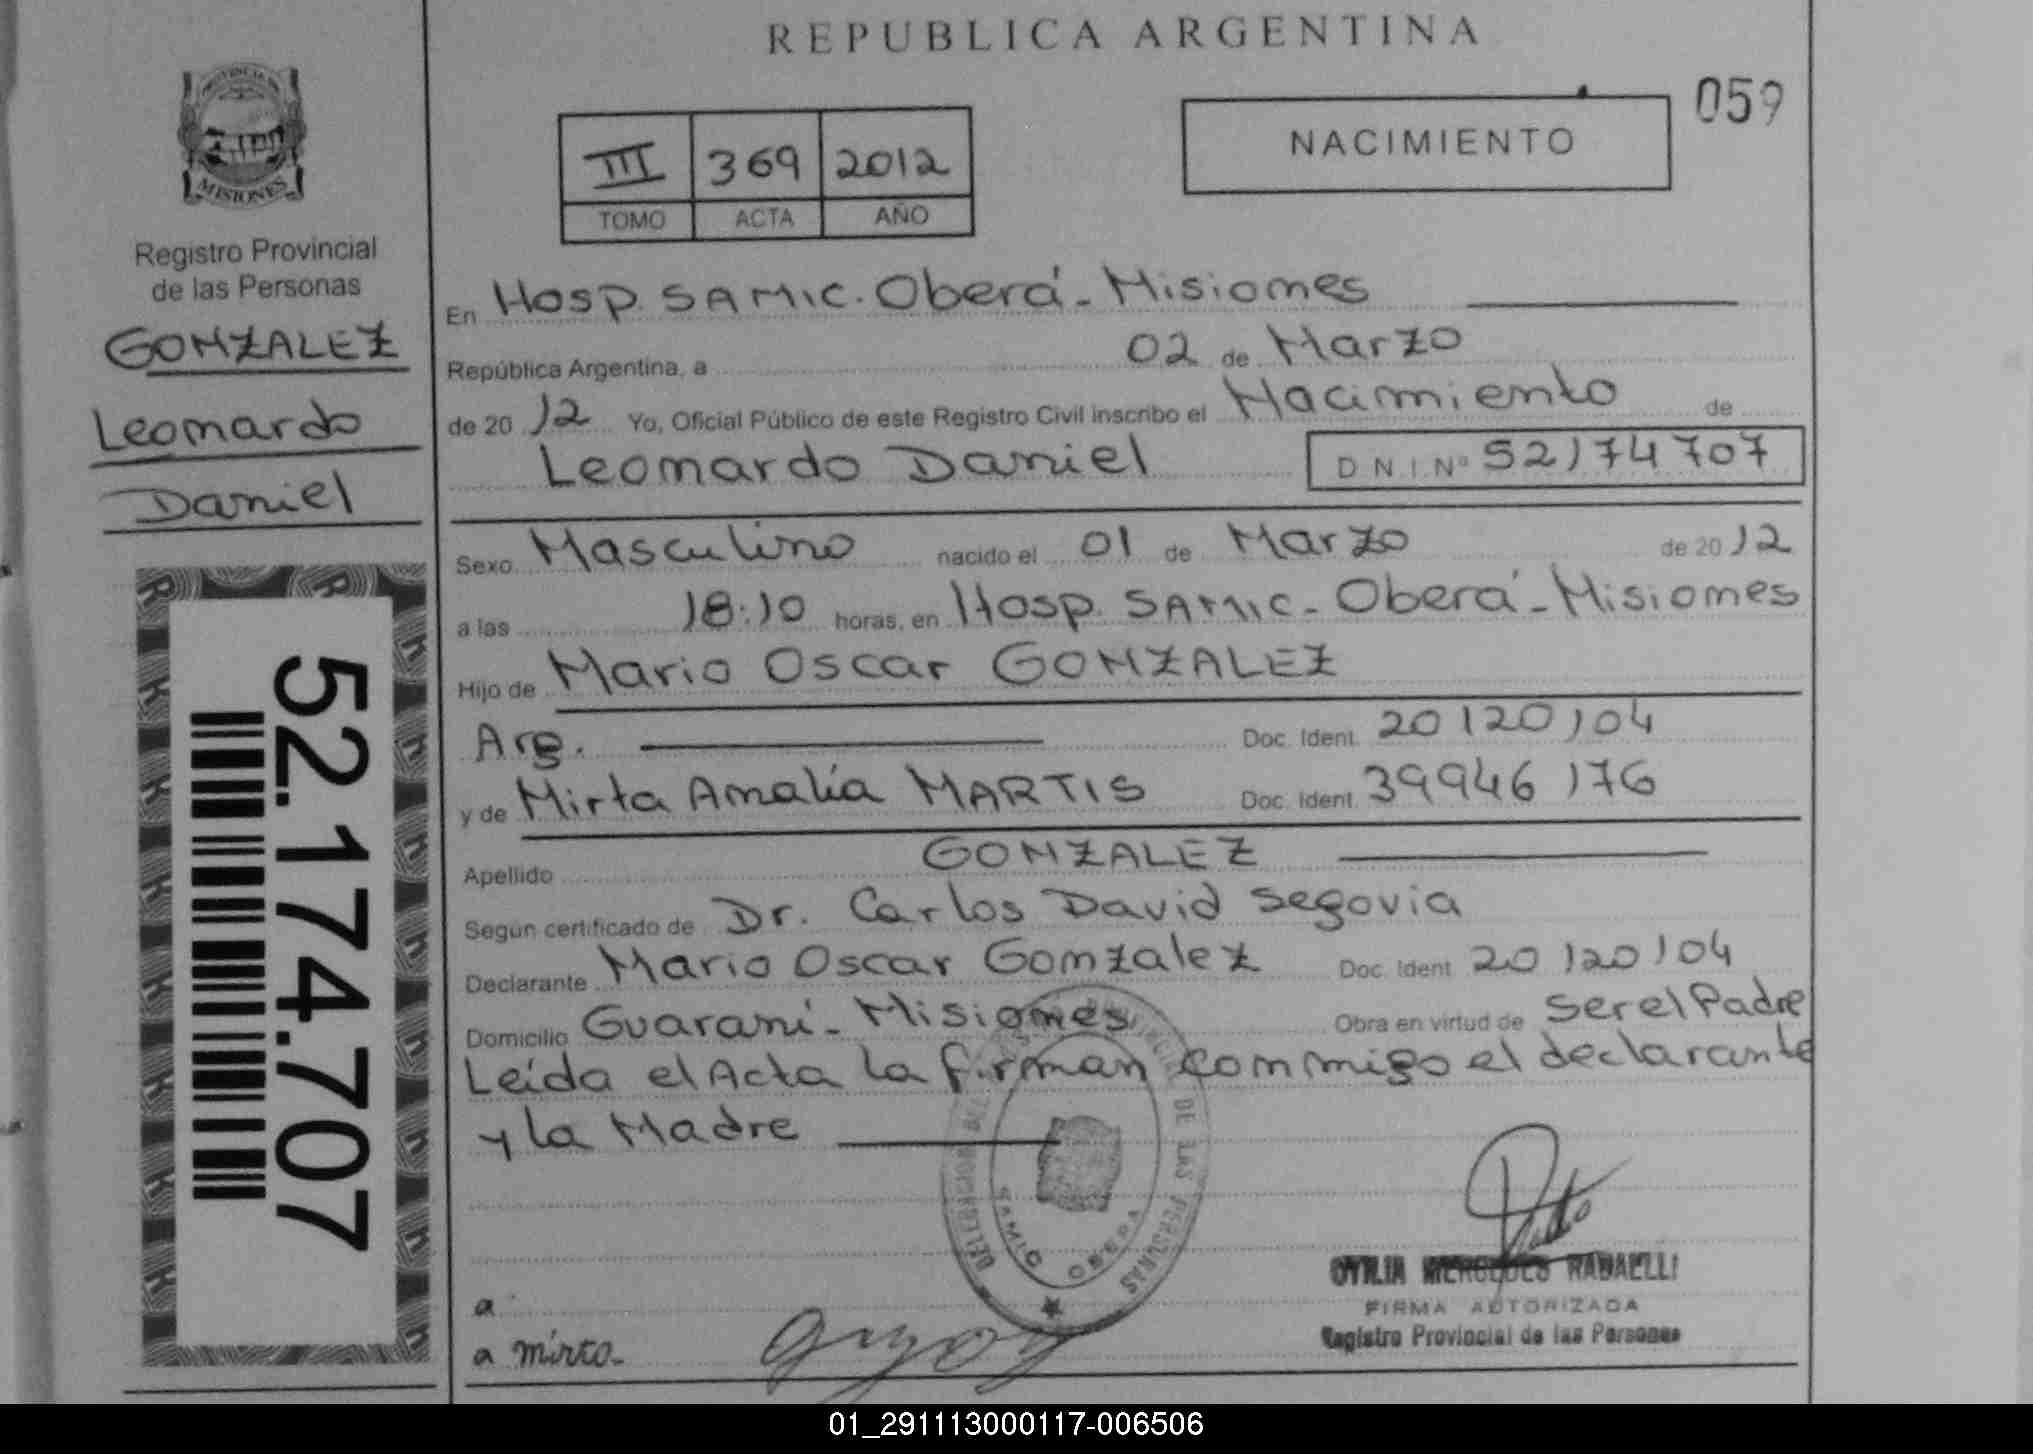 REPUBLICA ARGENTINA
059
NACIMIENTO
III 369 2012
TOMO ACTA AÑO
MISIONES
Registro Provincial
de las Personas
GONZALEZ
Leonardo
Daniel
52.174.707
En Hosp. SAMIC. Oberá - Misiones
República Argentina, a 02 de Marzo
de 2012 Yo, Oficial Público de este Registro Civil inscribo el Nacimiento de
Leonardo Daniel D N I Nº 52174707
Sexo Masculino nacido el 01 de Marzo de 2012
a las 18:10 horas, en Hosp. SAMIC - Oberá - Misiones
Hijo de Mario Oscar GONZALEZ
Arg. Doc. Ident. 20120104
y de Mirta Amalia MARTIS Doc. Ident. 39946176
Apellido GONZALEZ
Según certificado de Dr. Carlos David Segovia
Declarante Mario Oscar Gonzalez Doc. Ident 20120104
Domicilio Guaraní - Misiones Obra en virtud de ser el Padre
Leída el Acta la firman conmigo el declarante
y la Madre
DE LAS PERSONAS
SAMIC OBERA
RADAELLI
FIRMA AUTORIZADA
Registro Provincial de las Personas
a
a mirta.
01_291113000117-006506